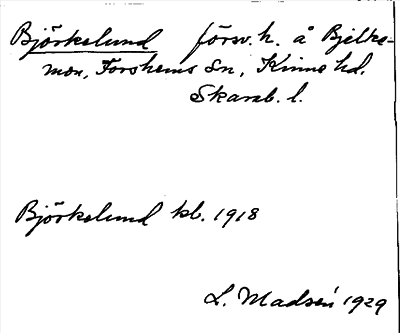 Björkelund försv. h. å Bjelke-
mon, Forshems Sn, Kinne hd.
Skarab. l.
Björkelund kb. 1918
L. Madsén 1929